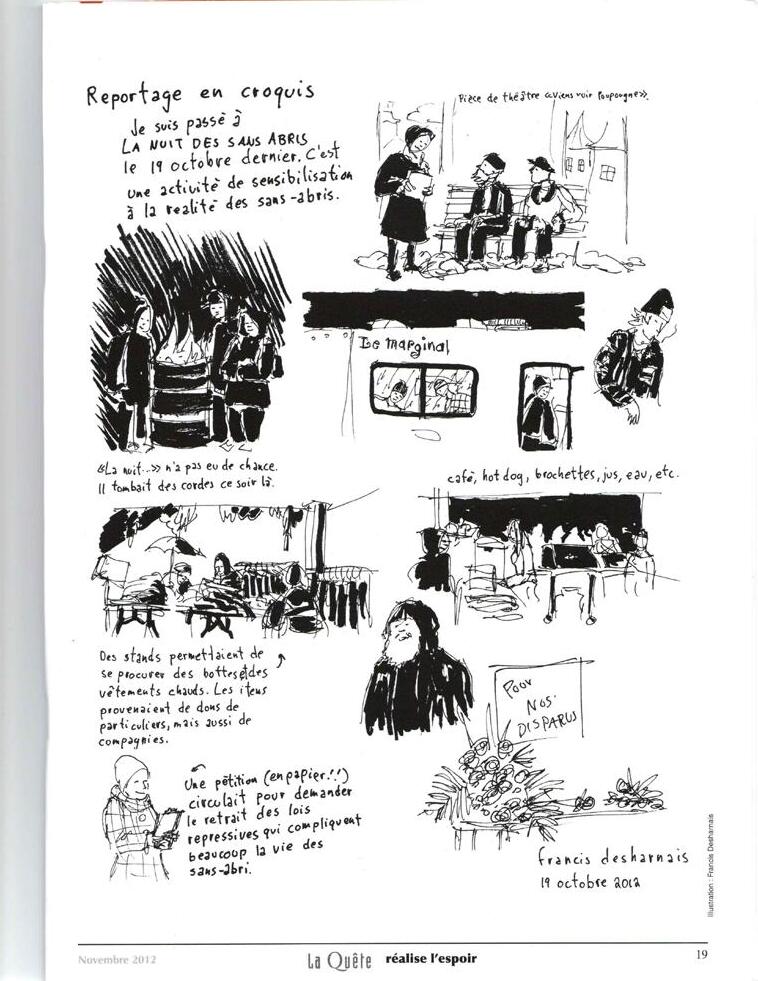 Reportage en croquis
Je suis passé à
LA NUIT DES SANS ABRIS
le 19 octobre dernier. C'est
une activité de sensibilisation
à la réalité des sans-abris.
Pièce de théâtre «Viens voir Poupougne».
Le Marginal
«La nuit...» n'a pas eu de chance.
Il tombait des cordes ce soir là.
café, hot dog, brochettes, jus, eau, etc.
Des stands permettaient de
se procurer des bottes et des
vêtements chauds. Les items
provenaient de dons de
particuliers, mais aussi de
compagnies.
POUR
NOS
DISPARUS
Une pétition (en papier!!)
circulait pour demander
le retrait des lois
repressives qui compliquent
beaucoup la vie des
sans-abri.
francis desharnais
19 octobre 2012
Illustration : Francis Desharnais
Novembre 2012
La Quête réalise l'espoir
19